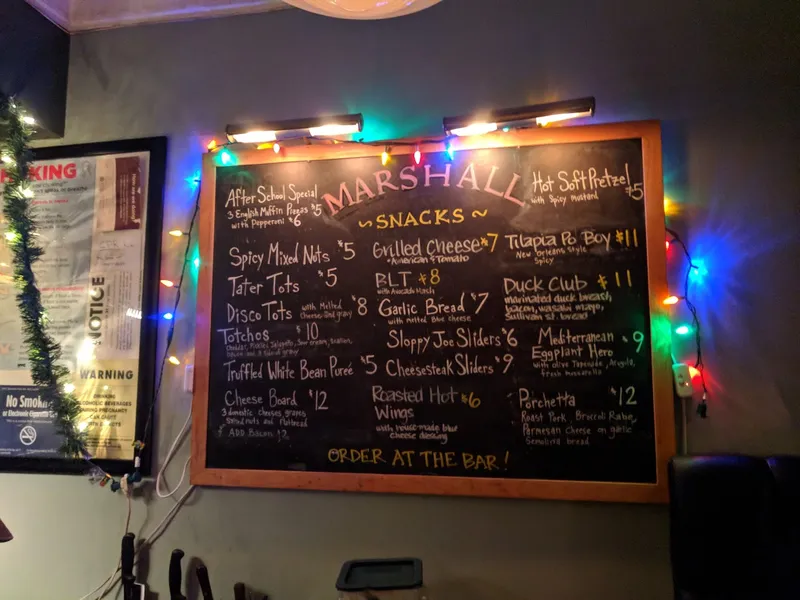 After School Special
3 English Muffin Pizzas $5
with Pepperoni $6
MARSHALL
~SNACKS~
Hot Soft Pretzel
with Spicy mustard $5
Spicy Mixed Nuts $5
Tater Tots $5
Disco Tots with Melted $8
Cheese and gravy
Totchos $10
Cheddar, Pickled Jalapeño, Sour cream,
Truffled White Bean Pureé $5
Cheese Board $12
3 domestic cheeses grapes
Salted nuts and Flatbread
ADD Bacon $2
Grilled Cheese $7
*American & Tomato
BLT $8
with Avocado Mash
Garlic Bread $7
with melted Blue cheese
Sloppy Joe Sliders $6
Cheesesteak Sliders $9
Roasted Hot $6
Wings
with house-made blue
cheese dressing
Tilapia Po Boy $11
New Orleans Style
Spicy
Duck Club $11
marinated duck breast,
bacon, wasabi mayo,
Sullivan St bread
Mediterranean $9
Eggplant Hero
with olive Tapenade, Arugula,
fresh mozzarella
Porchetta $12
Roast Pork, Broccoli Rabe,
Parmesan Cheese on garlic
Semolina bread
ORDER AT THE BAR!
KING
NOTICE
WARNING
DRINKING
ALCOHOLIC BEVERAGES
DURING PREGNANCY
No Smoking
or Electronic